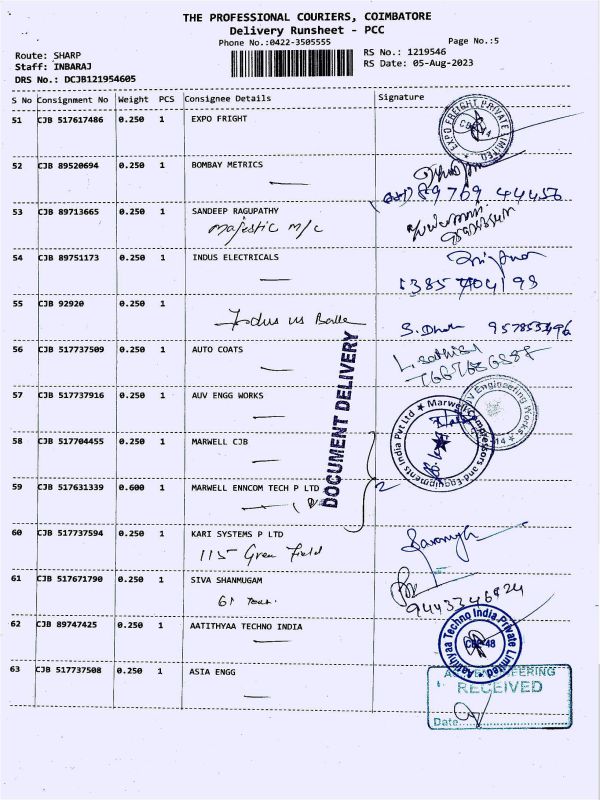 THE PROFESSIONAL COURIERS, COIMBATORE
Delivery Runsheet - PCC
Phone No.:0422-3505555 Page No.:5
Route: SHARP RS No.: 1219546
Staff: INBARAJ RS Date: 05-Aug-2023
DRS No.: DCJB121954605
S No Consignment No Weight PCS Consignee Details Signature
51 CJB 517617486 0.250 1 EXPO FREIGHT
EXPO FREIGHT PRIVATE LIMITED
52 CJB 89520694 0.250 1 BOMBAY METRICS
89769 44456
53 CJB 89713665 0.250 1 SANDEEP RAGUPATHY
majestic m/c
54 CJB 89751173 0.250 1 INDUS ELECTRICALS
55 CJB 92920 0.250 1
S. Dha
56 CJB 517737509 0.250 1 AUTO COATS
L. sathis
57 CJB 517737916 0.250 1 AUV ENGG WORKS
V Engineering Works
DOCUMENT DELIVERY
58 CJB 517704455 0.250 1 MARWELL CJB
Marwell Compressors and Equipments India Pvt Ltd
59 CJB 517631339 0.600 1 MARWELL ENNCOM TECH P LTD
2
60 CJB 517737594 0.250 1 KARI SYSTEMS P LTD
115 Green Field
61 CJB 517671790 0.250 1 SIVA SHANMUGAM
9443346824
62 CJB 89747425 0.250 1 AATITHYAA TECHNO INDIA
Aatithyaa Techno India Private Limited
CBE-48
63 CJB 517737508 0.250 1 ASIA ENGG
RECEIVED
Date